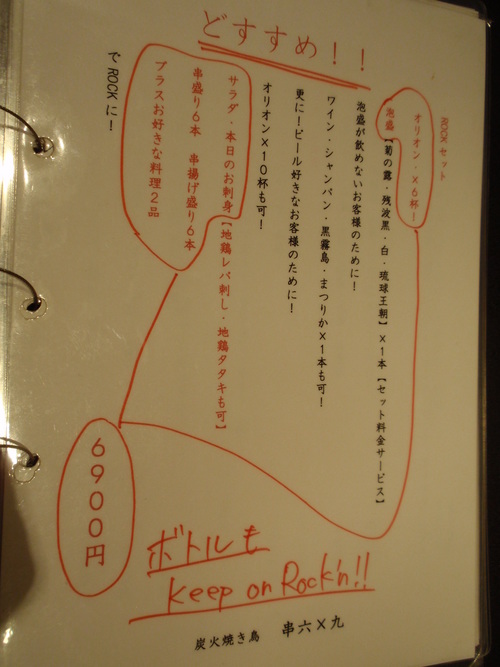 どすすめ！！
ROCKセット
オリオン・×6杯！
泡盛【菊の露・残波黒・白・琉球王朝】×1本【セット料金サービス】
泡盛が飲めないお客様のために！
ワイン・シャンパン・黒霧島・まつりか×1本も可！
更に！ビール好きなお客様のために！
オリオン×10杯も可！
サラダ・本日のお刺身【地鶏レバ刺し・地鶏タタキも可】
串盛り6本　串揚げ盛り6本
プラスお好きな料理2品
でROCKに！
6900円
ボトルも
keep on Rock'n!!
炭火焼き鳥　串六×九